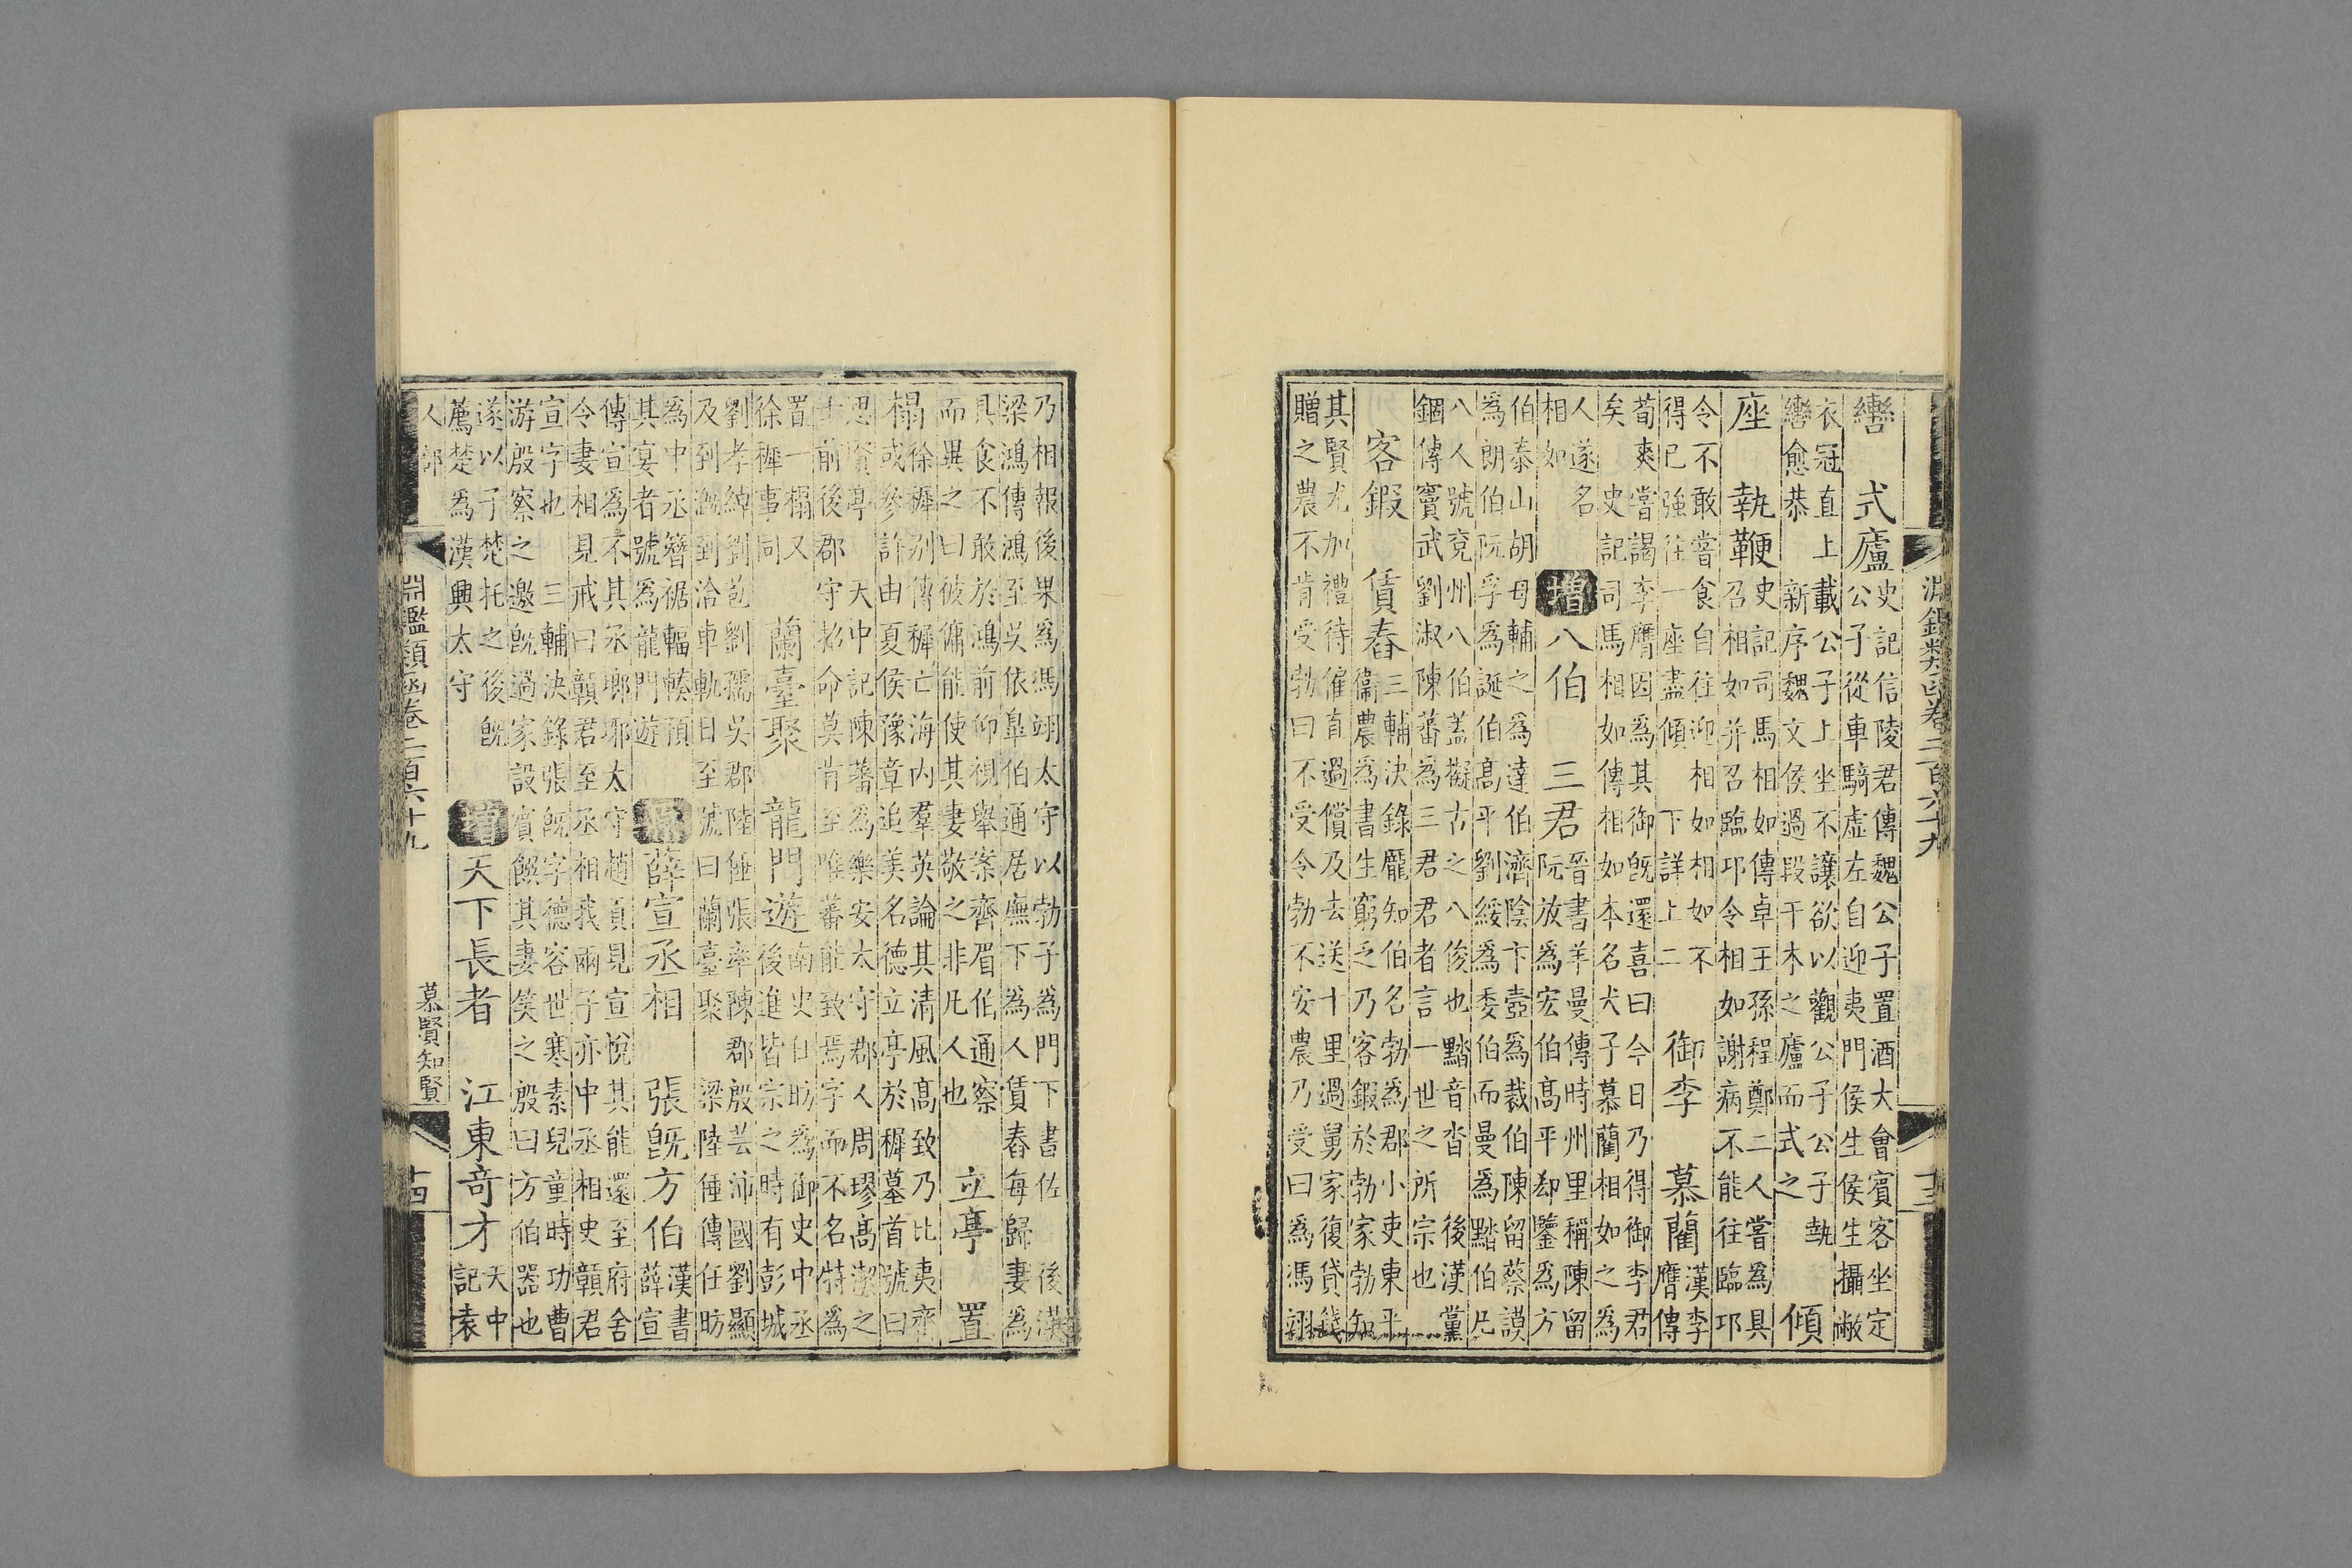 淵鑑類函卷二百六十九 十三
轡 式廬
史記信陵君傳魏公子置酒大會賓客坐定
公子從車騎虛左自迎夷門侯生侯生攝敝
衣冠直上載公子上坐不讓欲以觀公子公子執
轡愈恭 新序魏文侯過段干木之廬而式之
傾
座 執鞭
史記司馬相如傳卓王孫程鄭二人嘗為具
召相如并召臨邛令相如謝病不能往臨邛
令不敢嘗食自往迎相如相如不
得已強往一座盡傾 下詳上二
御李 慕藺
漢李
膺傳
荀爽嘗謁李膺因為其御既還喜曰今日乃得御李君
矣史記司馬相如傳相如本名犬子慕藺相如之為
人遂名
相如
增 八伯 三君
晉書羊曼傳時州里稱陳留
阮放為宏伯高平郄鑒為方
伯泰山胡母輔之為達伯濟陰卞壼為裁伯陳留蔡謨
為朗伯阮孚為誕伯高平劉綏為委伯而曼為黯伯凡
八人號兗州八伯蓋擬古之八俊也黯音沓 後漢黨
錮傳竇武劉淑陳蕃為三君君者言一世之所宗也
客鍜 賃舂
三輔決錄龐知伯名勃為郡小吏東平
衞農為書生窮乏乃客鍜於勃家勃知
其賢尤加禮待僱直過償及去送十里過舅家復貸錢
贈之農不肯受勃曰不受令勃不安農乃受曰為馮翊
乃相報後果為馮翊太守以勃子為門下書佐 後漢
梁鴻傳鴻至吳依臯伯通居廡下為人賃舂每歸妻為
具食不敢於鴻前仰視舉案齊眉伯通察
而異之曰彼傭能使其妻敬之非凡人也
立亭 置
榻
徐穉別傳穉亡海內羣英論其清風高致乃比夷齊
或參許由夏侯豫章追美名德立亭於穉墓首號曰
思賢亭 天中記陳蕃為樂安太守郡人周璆高潔之
士前後郡守招命莫肯至唯蕃能致焉字而不名特為
置一榻又
徐穉事同
蘭臺聚 龍門遊
南史任昉為御史中丞
後進皆宗之時有彭城
劉孝綽劉苞劉孺吳郡陸倕張率陳郡殷芸沛國劉顯
及到溉到洽車軌日至號曰蘭臺聚 梁陸倕傳任昉
為中丞簪裾輻輳預
其宴者號為龍門遊
原 薛宣丞相 張既方伯
漢書
薛宣
傳宣為不其丞瑯琊太守趙貢見宣悅其能還至府舍
令妻相見戒曰贛君至丞相我兩子亦中丞相史贛君
宣字也 三輔決錄張既字德容世寒素兒童時功曹
游殷察之邀既過家設賓饌其妻笑之殷曰方伯器也
遂以子楚托之後既
薦楚為漢興太守
增 天下長者 江東奇才
天中
記袁
人部 淵鑑類函卷二百六十九 慕賢知賢 十四